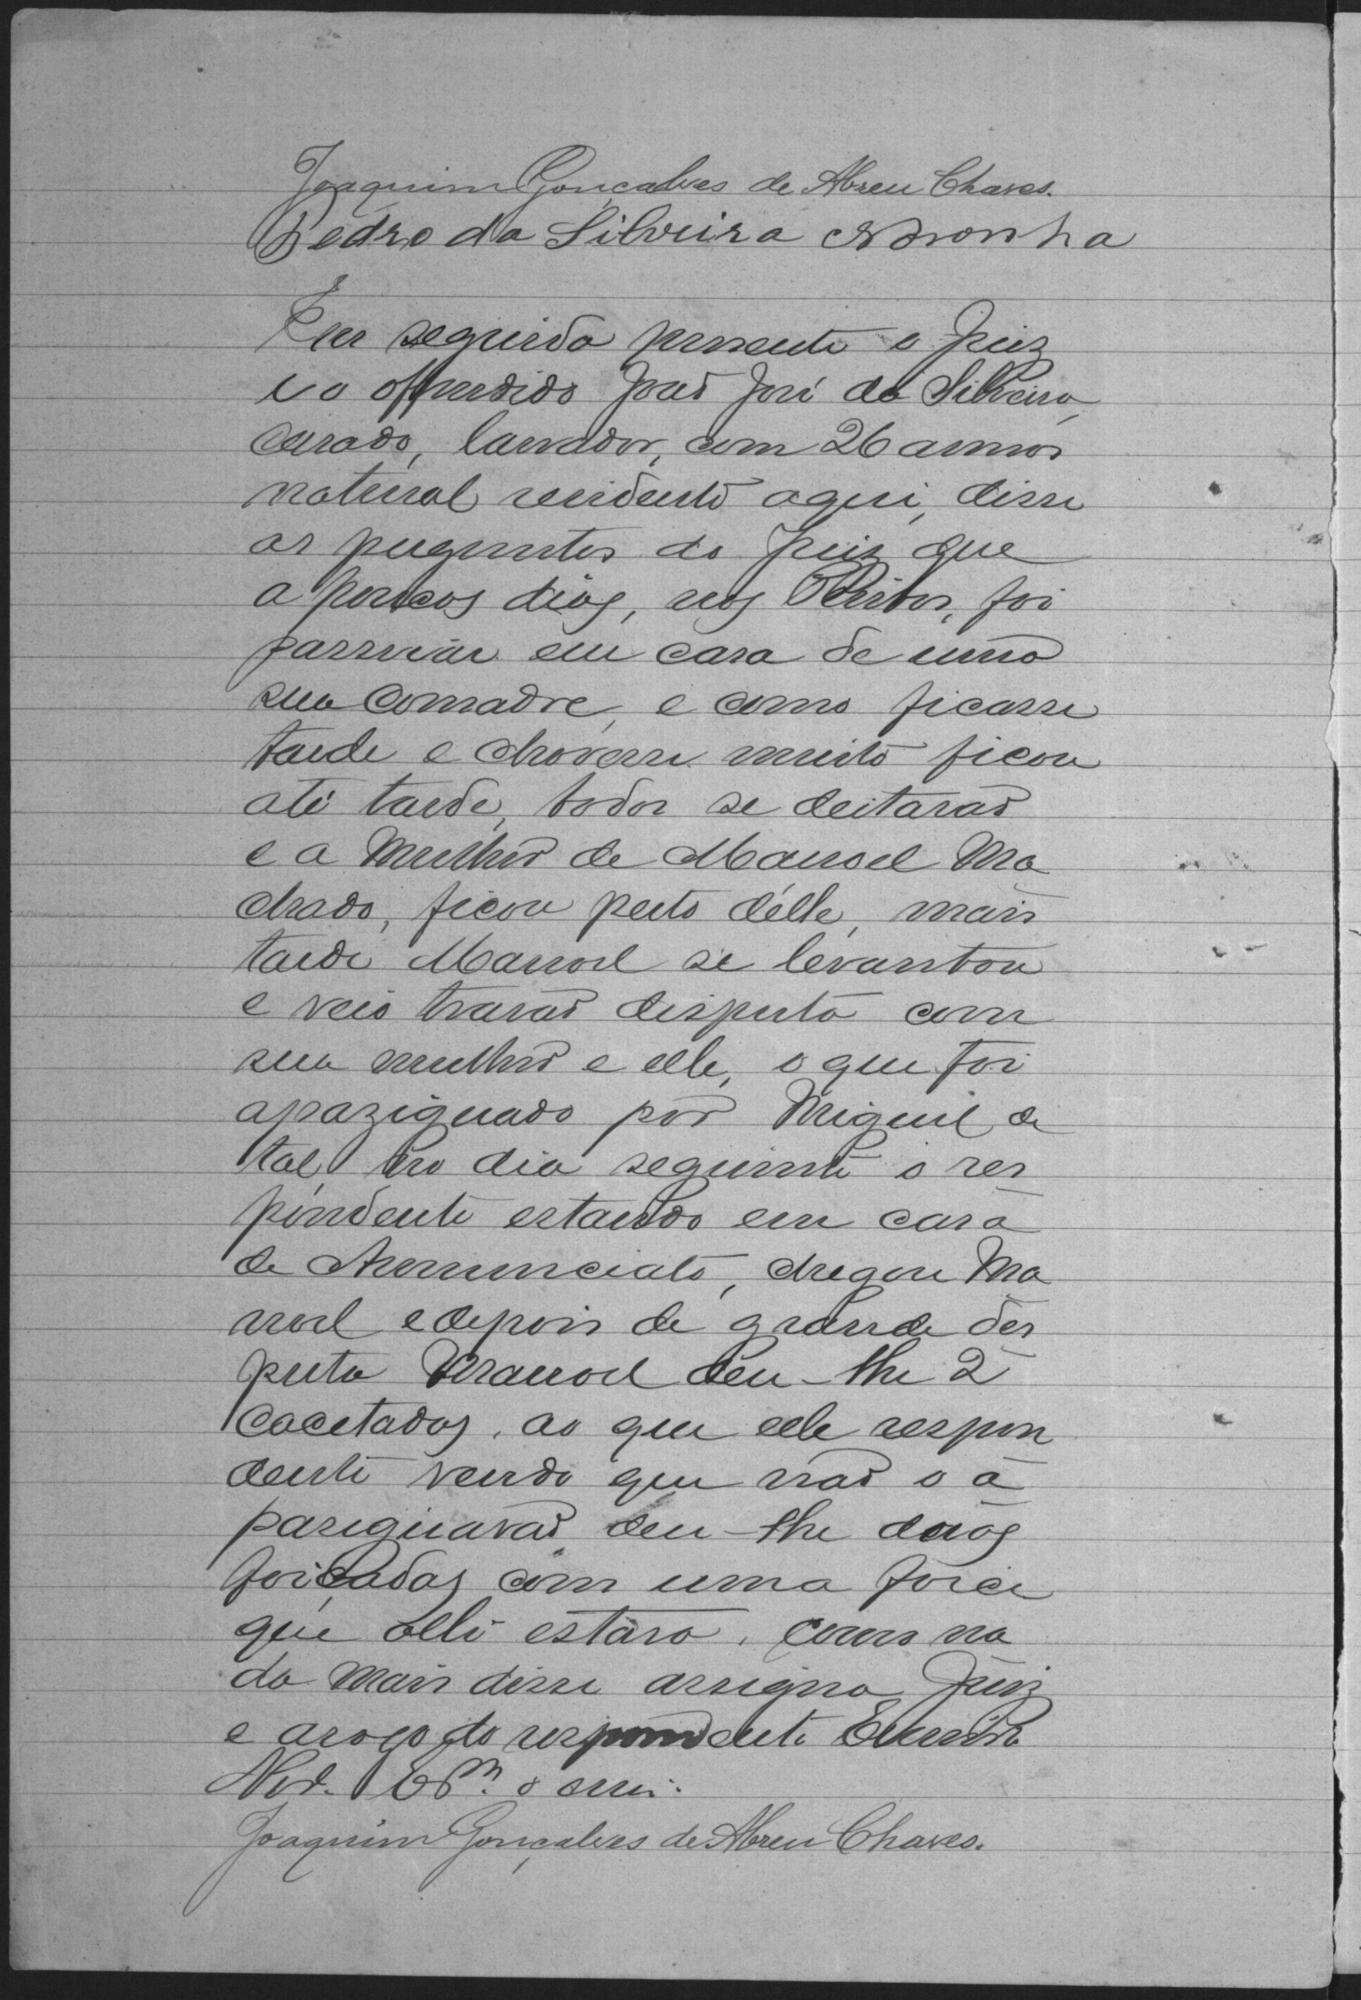 Joaquim Gonçalves de Abreu Chaves.
Pedro da Silveira Noronha
Em seguida presente o Juiz
e o offendido João José da Silveira,
casado, lavrador, com 26 annos
natural residente aqui, disse
as preguntas do Juiz que
a poucos dias, nos foi
passeiar em casa de uma
sua Comadre, e como ficasse
tarde e chovesse muito ficou
até tarde, todos se deitarão
e a Mulher de Manoel Ma
chado, ficou perto délle, mais
tarde Manoel se levantou
e veio travar disputa com
sua mulher e elle, o que foi
apaziguado por Miguel de
tal, no dia seguinte o res
pondente estando em casa
de Annunciato, chegou Ma
noel e depois de grande des
puta Manoel deu-lhe 2
cacetadas, ao que elle respon
dente vendo que não o a
pasiguavão deu-lhe duas
foiçadas com uma foice
que alli estava, como na
da mais disse assigna Juiz
e arogo do respondente
o escri.
Joaquim Gonçalves de Abreu Chaves.